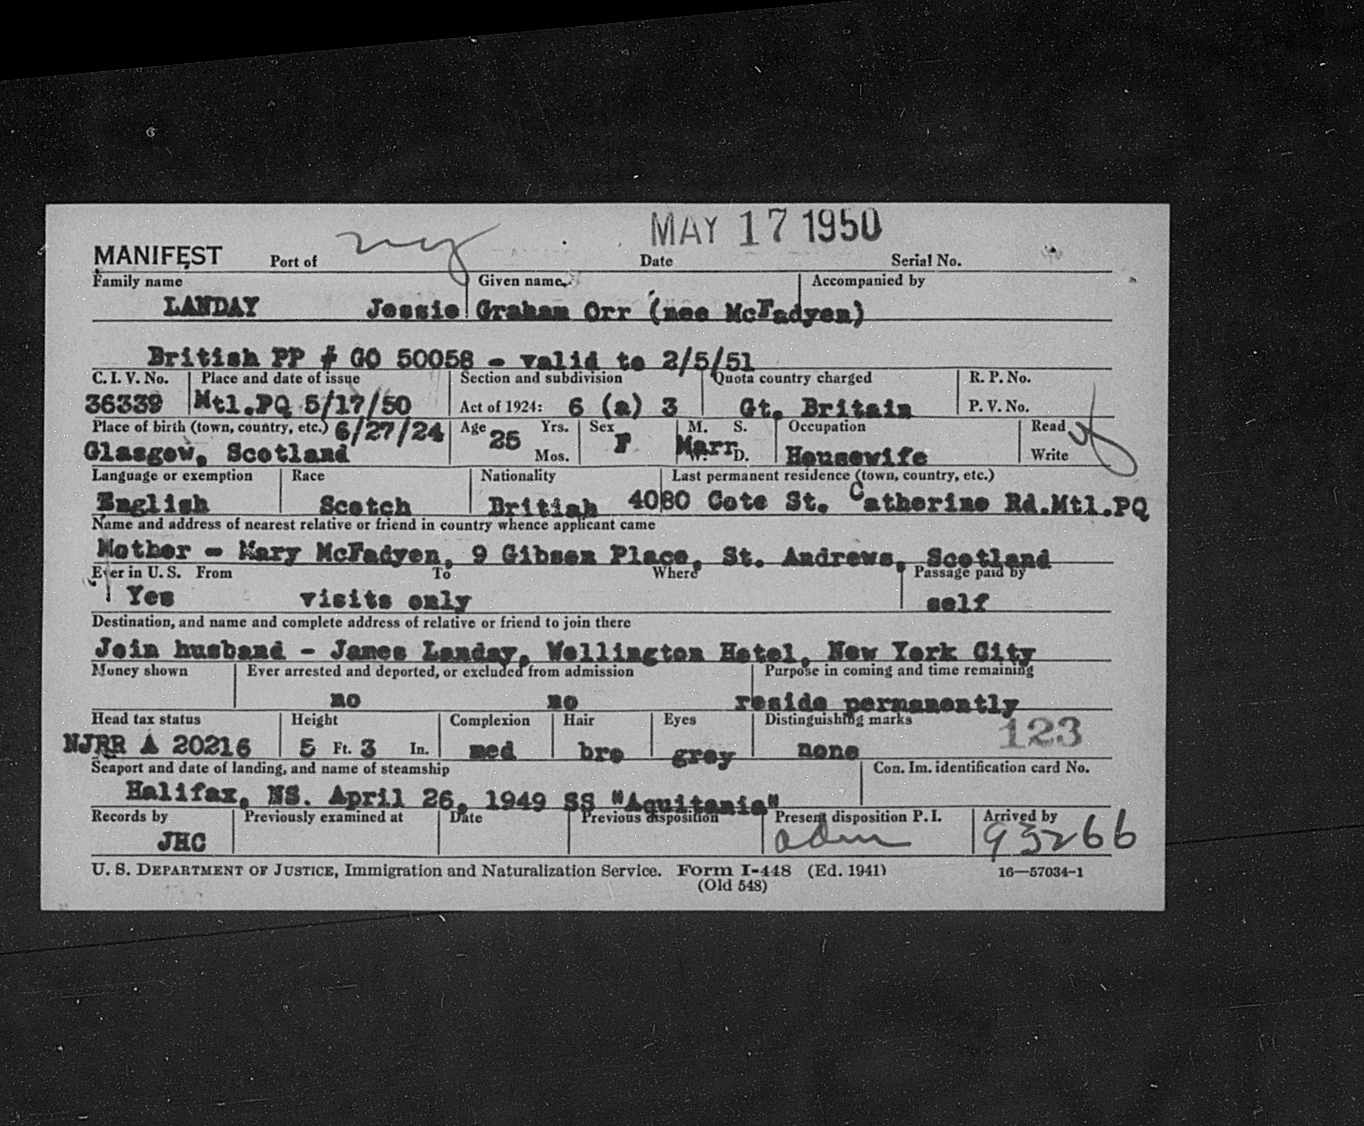 MAY 17 1950
MANIFEST Port of ny Date Serial No.
Family name Given name Accompanied by
LANDAY Jessie Graham Orr (nee McFadyen)
British PP # GO 50058 - valid to 2/5/51
C. I. V. No. Place and date of issue Section and subdivision Quota country charged R. P. No.
36339 Mtl.PQ 5/17/50 Act of 1924: 6 (a) 3 Gt. Britain P. V. No.
Place of birth (town, country, etc.) 6/27/24 Age 25 Yrs. Sex M. S. Occupation Read
Glasgow, Scotland Mos. F Marr D. Housewife Write
Language or exemption Race Nationality Last permanent residence (town, country, etc.)
English Scotch British 4080 Cote St. Catherine Rd.Mtl.PQ
Name and address of nearest relative or friend in country whence applicant came
Mother - Mary McFadyen, 9 Gibson Place, St. Andrews, Scotland
Ever in U. S. From To Where Passage paid by
Yes visits only self
Destination, and name and complete address of relative or friend to join there
Join husband - James Landay, Wellington Hotel, New York City
Money shown Ever arrested and deported, or excluded from admission Purpose in coming and time remaining
no no reside permanently
Head tax status Height Complexion Hair Eyes Distinguishing marks 123
NJRR A 20216 5 Ft. 3 In. med bro grey none
Seaport and date of landing, and name of steamship Con. Im. identification card No.
Halifax, NS. April 26, 1949 SS "Aquitania"
Records by Previously examined at Date Previous disposition Present disposition P. I. Arrived by
JHC adm 93266
U. S. DEPARTMENT OF JUSTICE, Immigration and Naturalization Service. Form I-448 (Ed. 1941) 16—57034-1
(Old 548)